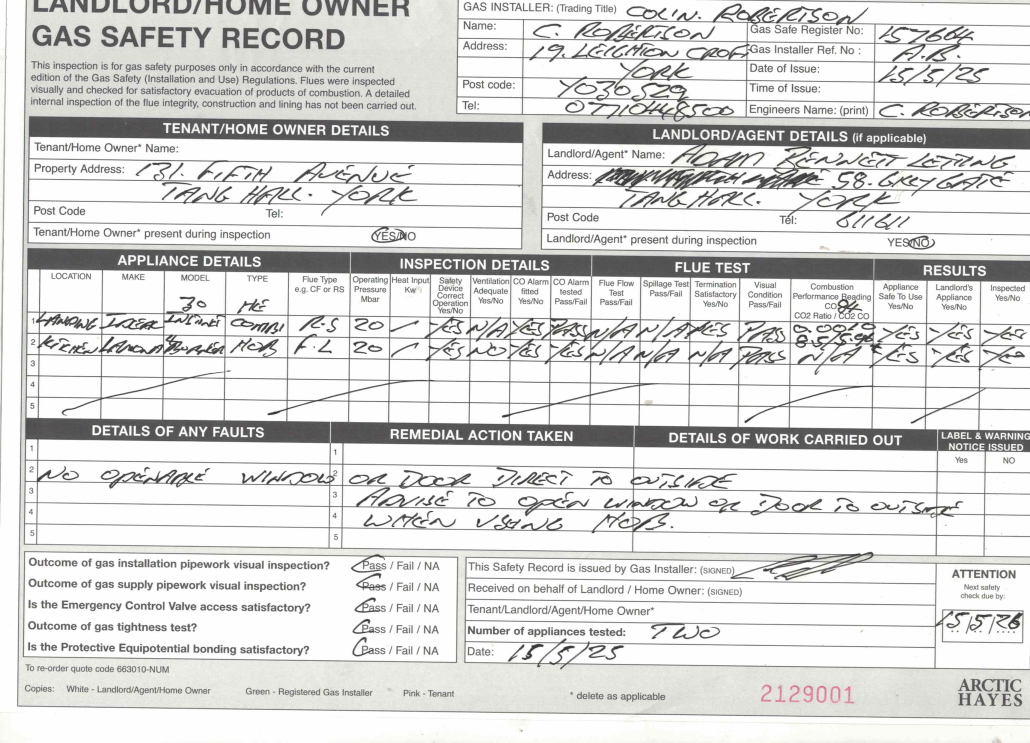 LANDLORD/HOME OWNER
GAS SAFETY RECORD
This inspection is for gas safety purposes only in accordance with the current
edition of the Gas Safety (Installation and Use) Regulations. Flues were inspected
visually and checked for satisfactory evacuation of products of combustion. A detailed
internal inspection of the flue integrity, construction and lining has not been carried out.
GAS INSTALLER: (Trading Title) COLIN. ROBERTSON
Name: C. ROBERTSON Gas Safe Register No: 157664
Address: 19. LEIGHTON CROFT Gas Installer Ref. No : A.B.
YORK Date of Issue: 15/5/25
Post code: YO30 5Z9 Time of Issue:
Tel: 07710448500 Engineers Name: (print) C. ROBERTSON
TENANT/HOME OWNER DETAILS
Tenant/Home Owner* Name:
Property Address: 131. FIFTH AVENUE
TANG HALL. YORK
Post Code Tel:
Tenant/Home Owner* present during inspection YES/NO
LANDLORD/AGENT DETAILS (if applicable)
Landlord/Agent* Name: ADAM BENNETT LETTING
Address: 58. GREYGATE
TANG HALL. YORK
Post Code Tél: 611611
Landlord/Agent* present during inspection YES/NO
APPLIANCE DETAILS INSPECTION DETAILS FLUE TEST RESULTS
LOCATION MAKE MODEL TYPE Flue Type e.g. CF or RS Operating Pressure Mbar Heat Input Kw Safety Device Correct Operation Yes/No Ventilation Adequate Yes/No CO Alarm fitted Yes/No CO Alarm tested Pass/Fail Flue Flow Test Pass/Fail Spillage Test Pass/Fail Termination Satisfactory Yes/No Visual Condition Pass/Fail Combustion Performance Reading CO2 CO2 Ratio / CO2 CO Appliance Safe To Use Yes/No Landlord's Appliance Yes/No Inspected Yes/No
30 HE
1 LANDING IDEAL COMBI R.S 20 / YES N/A YES PASS N/A N/A YES PASS 0.0010 YES YES YES
2 KITCHEN HOB F.L 20 / YES NO YES YES N/A N/A N/A PASS N/A YES YES YES
3
4
5
DETAILS OF ANY FAULTS REMEDIAL ACTION TAKEN DETAILS OF WORK CARRIED OUT LABEL & WARNING NOTICE ISSUED
Yes NO
1 1
2 NO OPENABLE WINDOWS 2 OR DOOR DIRECT TO OUTSIDE
3 3 ADVISE TO OPEN WINDOW OR DOOR TO OUTSIDE
4 4 WHEN USING HOB.
5 5
Outcome of gas installation pipework visual inspection? Pass / Fail / NA
Outcome of gas supply pipework visual inspection? Pass / Fail / NA
Is the Emergency Control Valve access satisfactory? Pass / Fail / NA
Outcome of gas tightness test? Pass / Fail / NA
Is the Protective Equipotential bonding satisfactory? Pass / Fail / NA
This Safety Record is issued by Gas Installer: (SIGNED)
Received on behalf of Landlord / Home Owner: (SIGNED)
Tenant/Landlord/Agent/Home Owner*
Number of appliances tested: TWO
Date: 15/5/25
ATTENTION
Next safety
check due by:
15/5/26
To re-order quote code 663010-NUM
Copies: White - Landlord/Agent/Home Owner Green - Registered Gas Installer Pink - Tenant * delete as applicable 2129001
ARCTIC
HAYES